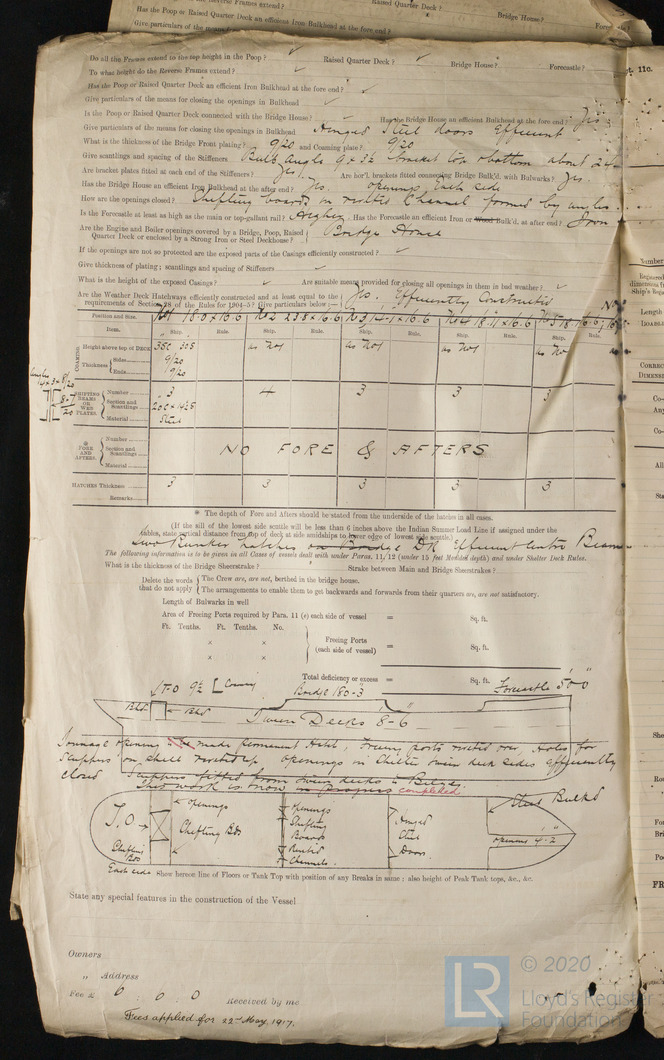 Do all the Frames extend to the top height in the Poop? ✓ Raised Quarter Deck? ✓ Bridge House? Forecastle?
To what height do the Reverse Frames extend? ✓
Has the Poop or Raised Quarter Deck an efficient Iron Bulkhead at the fore end? ✓
Give particulars of the means for closing the openings in Bulkhead ✓
Is the Poop or Raised Quarter Deck connected with the Bridge House? Has the Bridge House an efficient Bulkhead at the fore end? Yes
Give particulars of the means for closing the openings in Bulkhead Hinged Steel doors Efficient
What is the thickness of the Bridge Front plating? 9/20 and Coaming plate? 9/20
Give scantlings and spacing of the Stiffeners Bulb angle 9 x 3½ bracket top & bottom about 24
Are bracket plates fitted at each end of the Stiffeners? Yes Are hor'l. brackets fitted connecting Bridge Bulk'd. with Bulwarks? Yes
Has the Bridge House an efficient Iron Bulkhead at the after end? Yes. openings each side
How are the openings closed? Shifting boards in riveted Channel formed by angles
Is the Forecastle at least as high as the main or top-gallant rail? Higher. Has the Forecastle an efficient Iron or Wood Bulk'd. at after end? Iron
Are the Engine and Boiler openings covered by a Bridge, Poop, Raised
Quarter Deck or enclosed by a Strong Iron or Steel Deckhouse? Bridge House
If the openings are not so protected are the exposed parts of the Casings efficiently constructed? ✓
Give thickness of plating; scantlings and spacing of Stiffeners ✓
What is the height of the exposed Casings? ✓ Are suitable means provided for closing all openings in them in bad weather? ✓
Are the Weather Deck Hatchways efficiently constructed and at least equal to the
requirements of Section 28 of the Rules for 1904-5? Give particulars below:— Yes. Efficiently Constructed
Position and Size. No1 18.0 x 16.6 No2 23.8 x 16.6 No3 16.6 No4 16.6 No5
Item. Ship. Rule. Ship. Rule. Ship. Rule. Ship. Rule. Ship.
COAMING Height above top of DECK as No1 as No1 as No1 as No
Thickness Sides 9/20
Ends 9/20
SHIFTING BEAMS OR WEB PLATES. Number 3 4 3 3 3
Section and Scantlings
Material Steel
FORE AND AFTERS. Number
Section and Scantlings NO FORE & AFTERS
Material
HATCHES Thickness 3 3 3 3 3
Remarks
* The depth of Fore and Afters should be stated from the underside of the battens in all cases.
(If the sill of the lowest side scuttle will be less than 6 inches above the Indian Summer Load Line if assigned under the
tables, state vertical distance from top of deck at side amidships to lower edge of lowest side scuttle.)
Two Bunker hatches on Bridge Dk Efficient Centre Beam
The following information is to be given in all Cases of vessels dealt with under Paras. 11, 12 (under 15 feet Moulded depth) and under Shelter Deck Rules.
What is the thickness of the Bridge Sheerstrake? Strake between Main and Bridge Sheerstrakes?
Delete the words that do not apply { The Crew are, are not, berthed in the bridge house.
The arrangements to enable them to get backwards and forwards from their quarters are, are not satisfactory.
Length of Bulwarks in well
Area of Freeing Ports required by Para. 11 (e) each side of vessel = Sq. ft.
Ft. Tenths. Ft. Tenths. No.
× × Freeing Ports
× × (each side of vessel) = Sq. ft.
Total deficiency or excess = Sq. ft.
T.O 9½ Coaming Bridge 180-3 Forecastle 50-0
Blkd Blkd Tween Decks 8-6
Tonnage opening made Permanent Hatch, Freeing ports riveted over, Holes for
Scuppers on shell riveted up, openings in Shelter tween deck sides efficiently
closed Scuppers fitted from tween decks to Bilge,
This work is now in progress completed
T.O → openings openings Steel Bulkd
Shifting Bds Shifting Boards Riveted Channels. Hinged Steel Doors openings 4-2
Shifting Bds
Each side Show hereon line of Floors or Tank Top with position of any Breaks in same; also height of Peak Tank tops, &c., &c.
State any special features in the construction of the Vessel
Owners
„ Address
Fee £ 6 . 0 . 0 Received by me
Fees applied for 22nd May, 1917.
LR © 2020
Lloyd's Register
Foundation